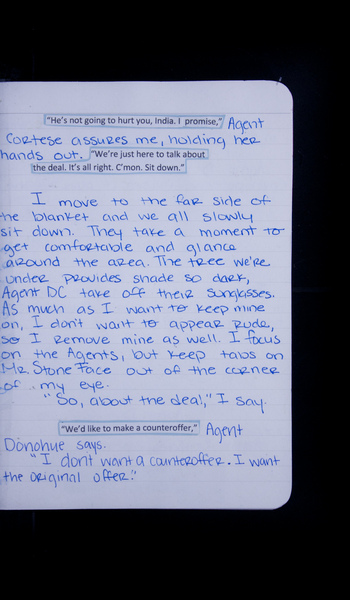 "He's not going to hurt you, India. I promise," Agent
Cortese assures me, holding her
hands out. "We're just here to talk about
the deal. It's all right. C'mon. Sit down."
I move to the far side of
the blanket and we all slowly
sit down. They take a moment to
get comfortable and glance
around the area. The tree we're
under provides shade so dark,
Agent DC take off their sunglasses.
As much as I want to keep mine
on, I don't want to appear rude,
so I remove mine as well. I focus
on the Agents, but keep tabs on
Mr. Stone Face out of the corner
of my eye.
"So, about the deal," I say.
"We'd like to make a counteroffer," Agent
Donohue says.
"I don't want a counteroffer. I want
the original offer."